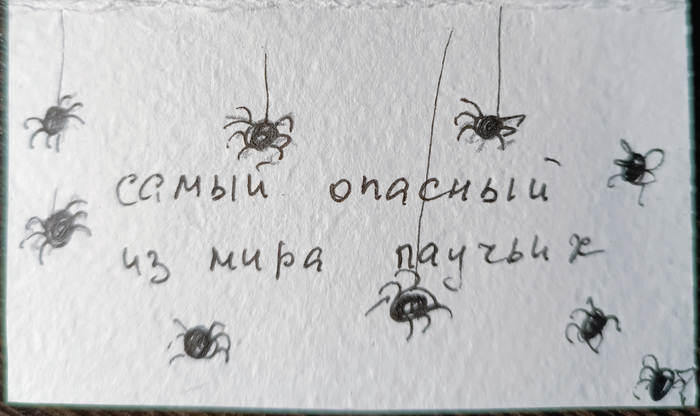 самый опасный
из мира паучьих